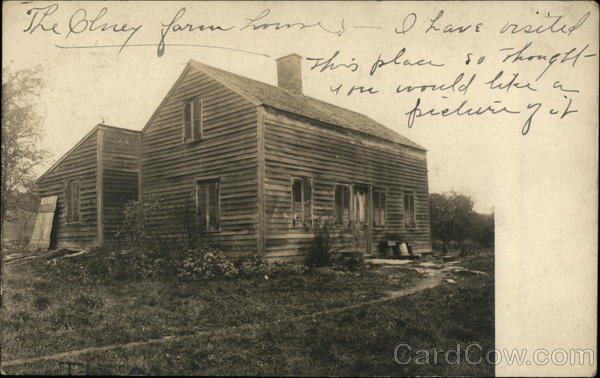 The Olney farm house - I have visited
this place so thought
you would like a
picture of it
CardCow.com